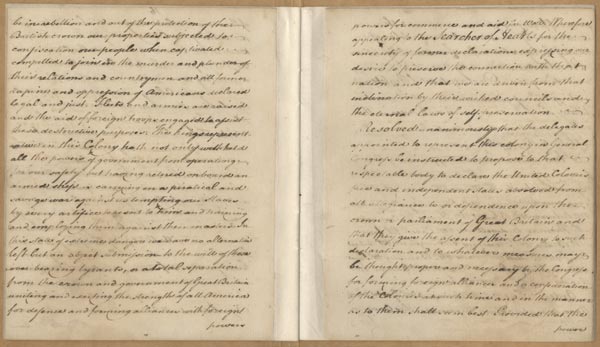 be in rebellion and out of the protection of the
British crown our properties subjected to
confiscation our people when captivated
compelled to join in the murder and plunder of
their relations and countrymen and all former
rapine and oppression of Americans declared
legal and just. Fleets and armies are raised
and the aid of foreign troops engaged to assist
these destructive purposes. The kings represen
tative in this Colony hath not only withheld
all the powers of government from operating
for our safety but having retired on board an
armed ship is carrying on a piratical and
savage war against us tempting our Slaves
by every artifice to resort to him and training
and employing them against their masters. In
this state of extreme danger we have no alternative
left but an abject submission to the will of those
over-bearing tyrants, or a total separation
from the crown and government of Great Britain
uniting and exerting the strength of all America
for defence and forming alliances with foreign
powers
powers for commerce and aid in War. Wherefore
appealing to the Searcher of Hearts for the
sincerity of former declarations expressing our
desire to preserve the connection with that
nation and that we are driven from that
inclination by their wicked councils and
the eternal laws of self preservation
Resolved unanimously that the delegates
appointed to represent this colony in General
Congress be instructed to propose to that
respectable body to declare the United Colonies
free and independent states absolved from
all allegiance to or dependence upon the
crown or parliament of Great Britain and
that they give the assent of this Colony to such
declaration and to whatever measures may
be thought proper and necessary by the Congress
for forming foreign alliances and a confederation
of the Colonies at such time and in the manner
as to them shall seem best. Provided that the
power